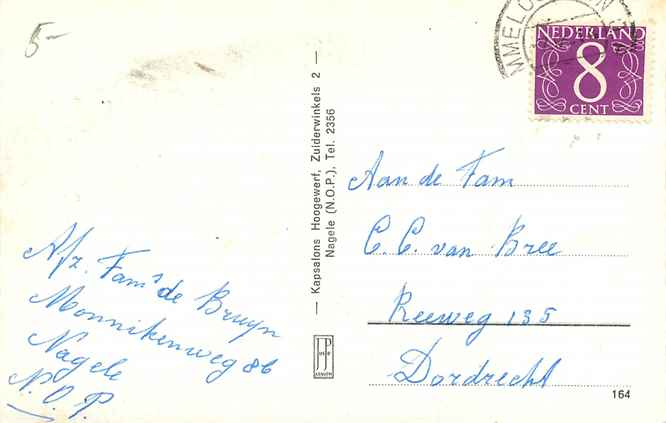 5-
NEDERLAND
8
CENT
Afz. Fam de Bruyn
Monnikenweg 86
Nagele
N.O.P.
— Kapsalons Hoogewerf, Zuiderwinkels 2 —
Nagele (N.O.P.), Tel. 2356
Aan de Fam
C. C. van Bree
Reeweg 135
Dordrecht
164